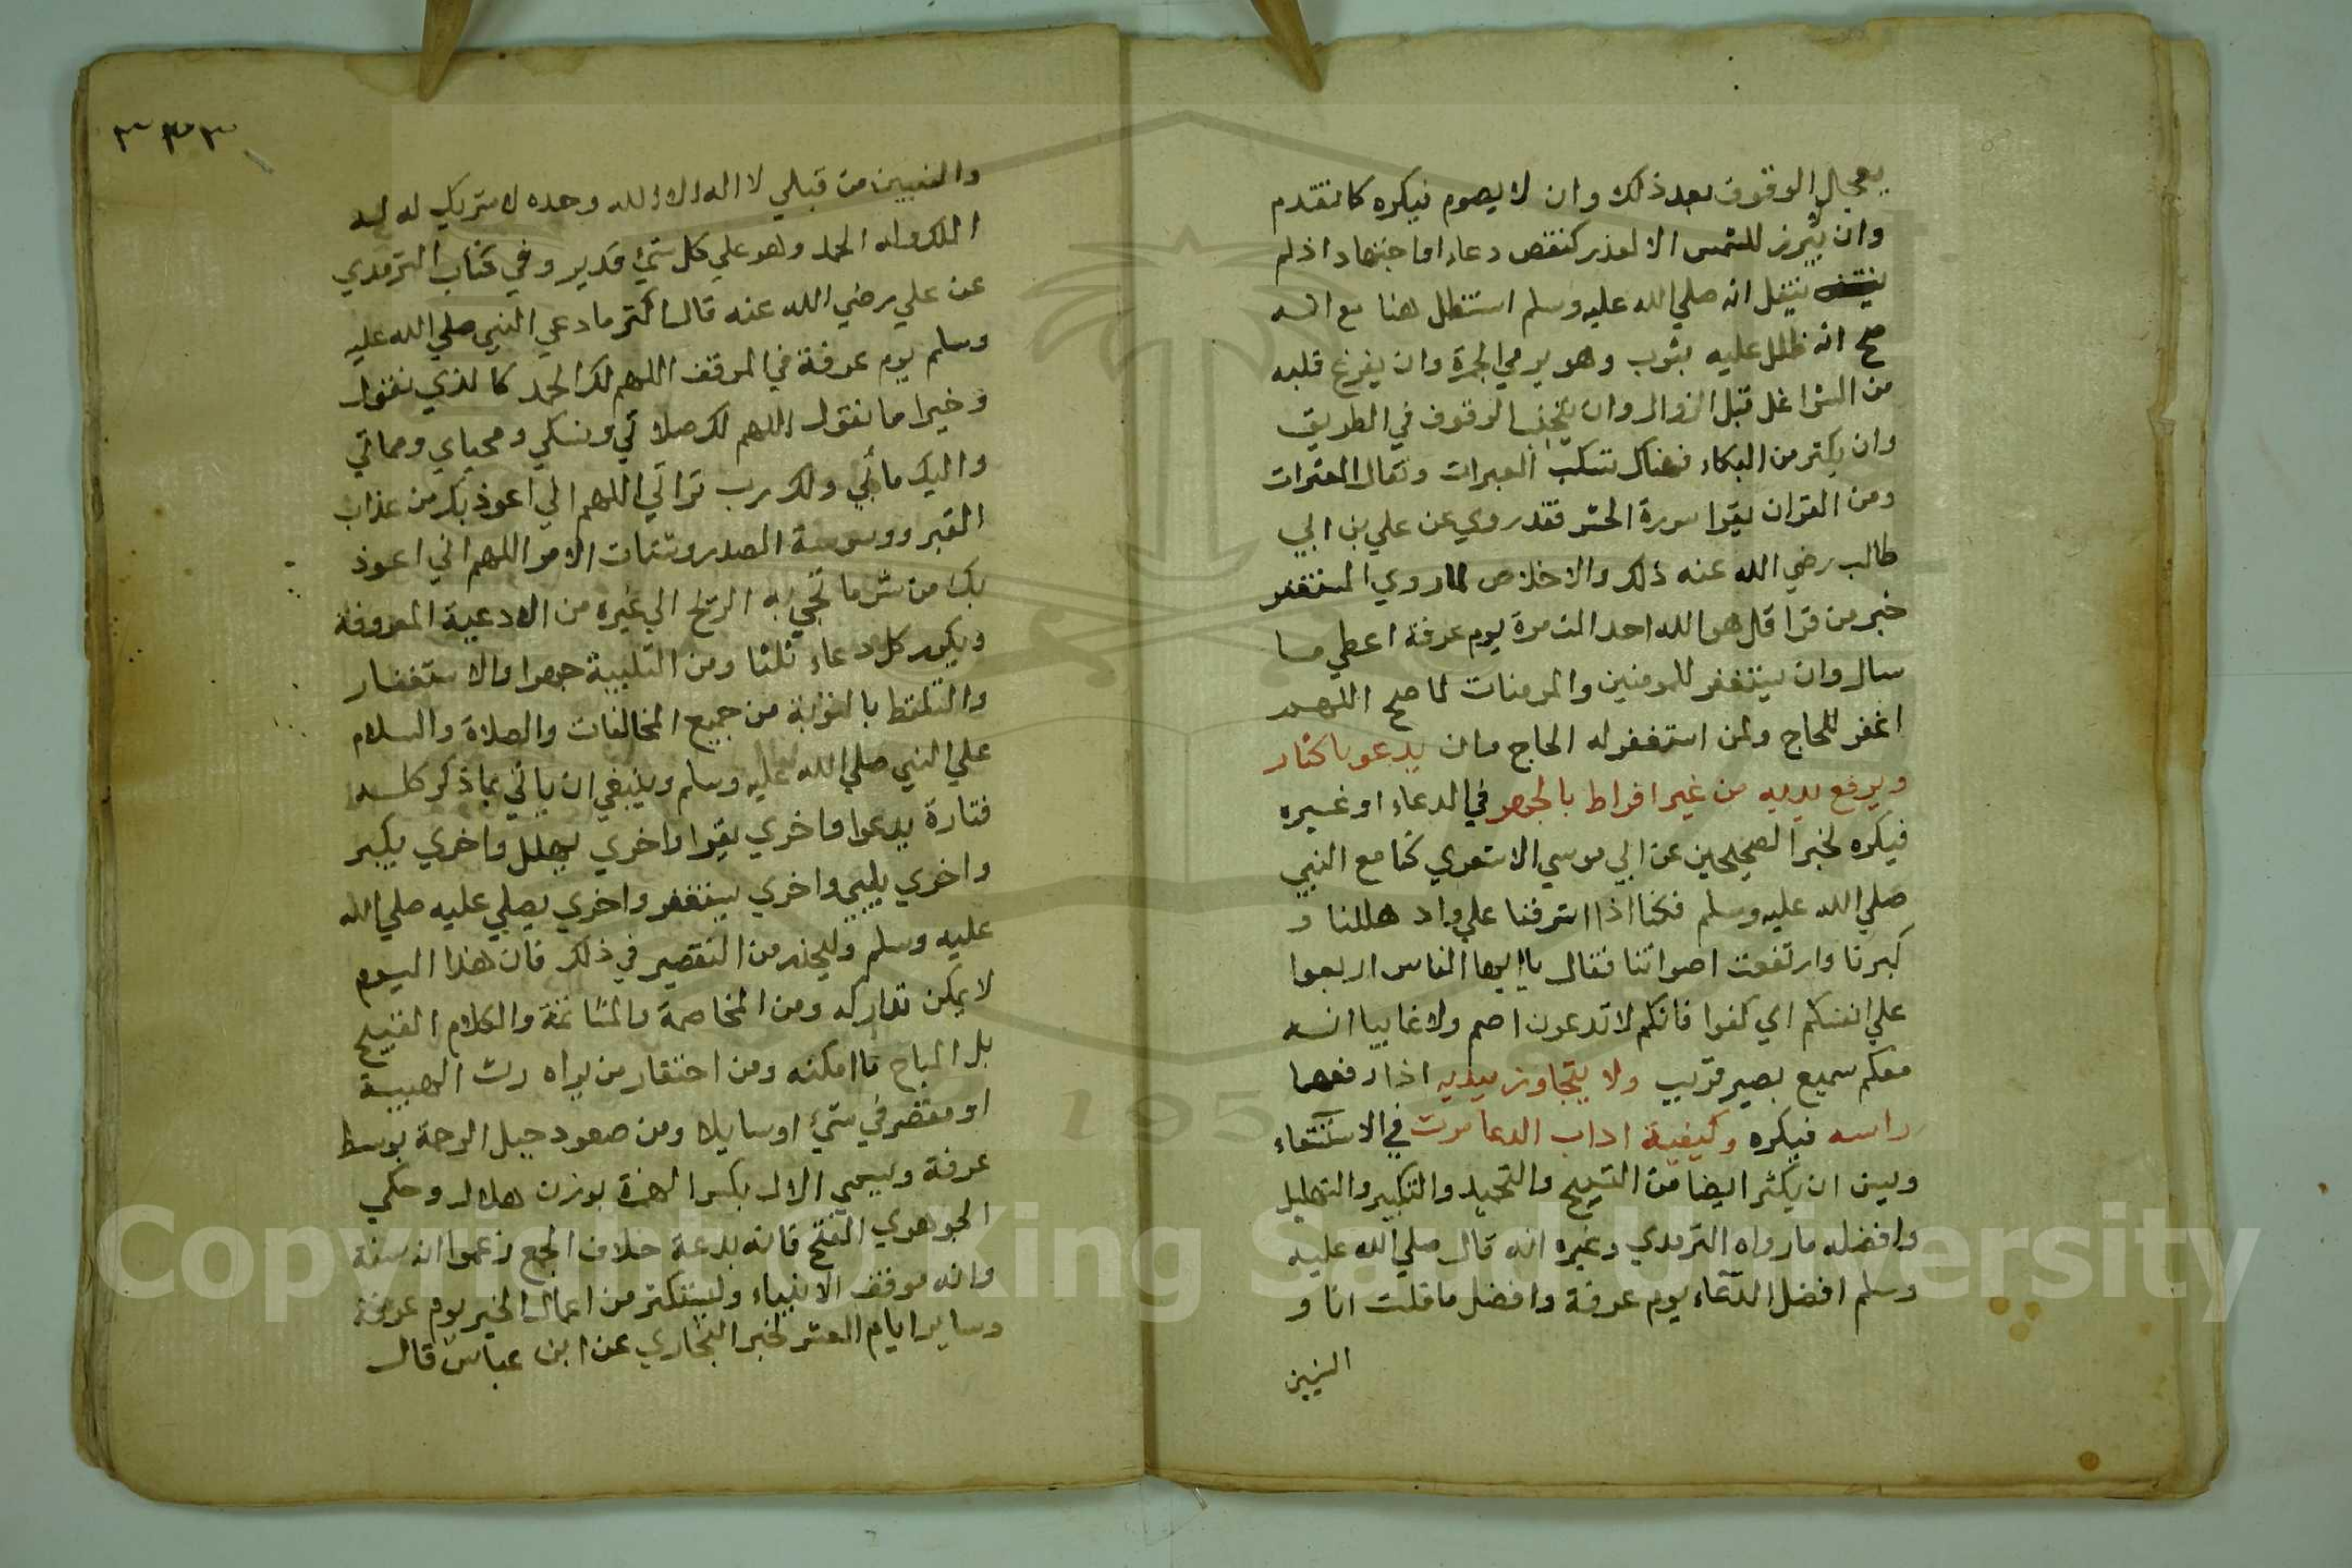 يعجل الوقوف بعد ذلك وان لا يصوم فيكره كما تقدم
وان يبرز للشمس الا لعذر كنقص دعاء او اجتهاد اذ لم
ينقل انه صلي الله عليه وسلم استظل هنا مع انه
صح انه ظلل عليه بثوب وهو يرمي الجمرة وان يفرغ قلبه
من الشواغل قبل الزوال وان يتجنب الوقوف في الطريق
وان يكثر من البكاء فهناك تسكب العبرات وتقال العثرات
ومن القران يقرا سورة الحشر فقد روي عن علي بن ابي
طالب رضي الله عنه ذلك والاخلاص لما روي المستغفر
خبر من قرا قل هو الله احد الف مرة يوم عرفة اعطي ما
سال وان يستغفر للمومنين والمومنات لما صح اللهم
اغفر للحاج ولمن استغفر له الحاج وان يدعو باكثار
ويرفع يديه من غير افراط بالجهر في الدعاء او غيره
فيكره لخبر الصحيحين عن ابي موسي الاشعري كنا مع النبي
صلي الله عليه وسلم فكنا اذا اشرفنا علي واد هللنا و
كبرنا وارتفعت اصواتنا فقال يا ايها الناس اربعوا
علي انفسكم اي كفوا فانكم لا تدعون اصم ولا غايبا انه
معكم سميع بصير قريب ولا يتجاوز بيديه اذا رفعهما
راسه فيكره وكيفية اداب الدعا مرت في الاستسقاء
ويسن ان يكثر ايضا من التسبيح والتحميد والتكبير والتهليل
وافضله ما رواه الترمدي وغيره انه قال صلي الله عليه
وسلم افضل الدعاء يوم عرفة وافضل ما قلت انا و
النبيين
٣٣٣
والنبيين من قبلي لا اله الا الله وحده لا شريك له له
الملك وله الحمد وهو علي كل شيء قدير وفي كتاب الترمدي
عن علي رضي الله عنه قال اكثر ما دعي النبي صلي الله عليه
وسلم يوم عرفة في الموقف اللهم لك الحمد كالذي نقول
وخيرا ما نقول اللهم لك صلاتي ونسكي ومحياي ومماتي
واليك مابي ولك رب تراثي اللهم اني اعوذ بك من عذاب
القبر ووسوسة الصدر وشتات الامر اللهم اني اعوذ
بك من شر ما تجي به الريح الي غيره من الادعية المعروفة
ويكرر كل دعاء ثلثا ومن التلبية جهرا والاستغفار
والتلفظ بالتوبة من جميع المخالفات والصلاة والسلام
علي النبي صلي الله عليه وسلم وينبغي ان ياتي بما ذكر كله
فتارة يدعوا واخري يقرا واخري يهلل واخري يكبر
واخري يلبي واخري يستغفر واخري يصلي عليه صلي الله
عليه وسلم وليحذر من التقصير في ذلك فان هذا اليوم
لا يمكن تداركه ومن المخاصمة والمشاتمة والكلام القبيح
بل المباح ما امكنه ومن احتقار من يراه رث الهيية
او مقصر في شيء او سايلا ومن صعود جبل الرحمة بوسط
عرفة ويسمي الال بكسر الهمزة بوزن هلال وحكي
الجوهري الفتح فانه بدعة خلاف الجمع زعموا انه سنة
وانه موقف الانبياء وليستكثر من اعمال الخير يوم عرفة
وساير ايام العشر لخبر البخاري عن ابن عباس قال
Copyright © King Saud University
195